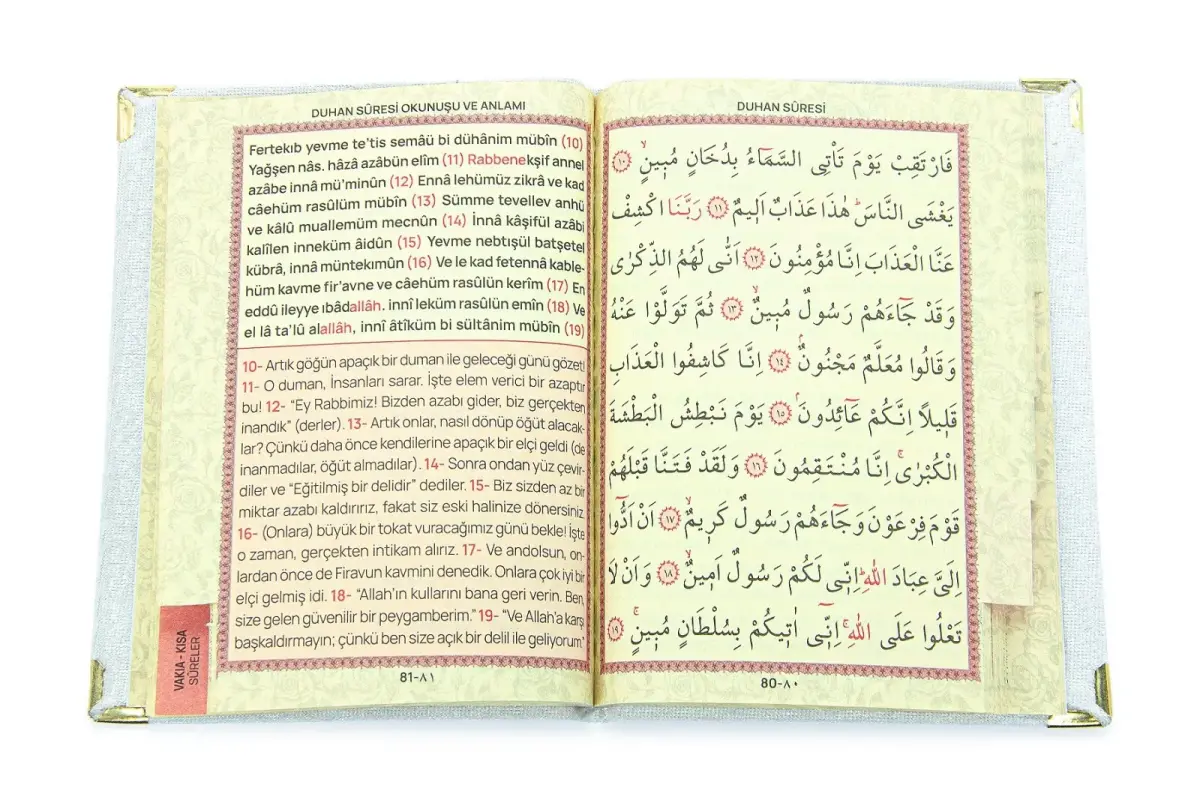 DUHAN SÛRESİ OKUNUŞU VE ANLAMI
Fertekıb yevme te'tis semâü bi dühânim mübîn (10)
Yağşen nâs. hâzâ azâbün elîm (11) Rabbenekşif annel
azâbe innâ mü'minûn (12) Ennâ lehümüz zikrâ ve kad
câehüm rasûlüm mübîn (13) Sümme tevellev anhü
ve kâlû muallemüm mecnûn (14) İnnâ kâşifül azâbi
kalîlen inneküm âidûn (15) Yevme nebtışül batşetel
kübrâ, innâ müntekımûn (16) Ve le kad fetennâ kable-
hüm kavme fir'avne ve câehüm rasûlün kerîm (17) En
eddû ileyye ıbâdallâh. innî leküm rasûlün emîn (18) Ve
el lâ ta'lû alallâh, innî âtîküm bi sültânim mübîn (19)
10- Artık göğün apaçık bir duman ile geleceği günü gözet!
11- O duman, İnsanları sarar. İşte elem verici bir azaptır
bu! 12- "Ey Rabbimiz! Bizden azabı gider, biz gerçekten
inandık" (derler). 13- Artık onlar, nasıl dönüp öğüt alacak-
lar? Çünkü daha önce kendilerine apaçık bir elçi geldi (de
inanmadılar, öğüt almadılar). 14- Sonra ondan yüz çevir-
diler ve "Eğitilmiş bir delidir" dediler. 15- Biz sizden az bir
miktar azabı kaldırırız, fakat siz eski halinize dönersiniz.
16- (Onlara) büyük bir tokat vuracağımız günü bekle! İşte
o zaman, gerçekten intikam alırız. 17- Ve andolsun, on-
lardan önce de Firavun kavmini denedik. Onlara çok iyi bir
elçi gelmiş idi. 18- "Allah'ın kullarını bana geri verin. Ben,
size gelen güvenilir bir peygamberim." 19- "Ve Allah'a karşı
başkaldırmayın; çünkü ben size açık bir delil ile geliyorum"
81-٨١
VAKIA - KISA
SÛRELER
DUHAN SÛRESİ
فَارْتَقِبْ يَوْمَ تَأْتِى السَّمَٓاءُ بِدُخَانٍ مُبٖينٍۙ ﴿١٠﴾
يَغْشَى النَّاسَؕ هٰذَا عَذَابٌ اَلٖيمٌ ﴿١١﴾ رَبَّنَا اكْشِفْ
عَنَّا الْعَذَابَ اِنَّا مُؤْمِنُونَ ﴿١٢﴾ اَنّٰى لَهُمُ الذِّكْرٰى
وَقَدْ جَٓاءَهُمْ رَسُولٌ مُبٖينٌۙ ﴿١٣﴾ ثُمَّ تَوَلَّوْا عَنْهُ
وَقَالُوا مُعَلَّمٌ مَجْنُونٌۘ ﴿١٤﴾ اِنَّا كَاشِفُوا الْعَذَابِ
قَلٖيلًا اِنَّكُمْ عَٓائِدُونَۘ ﴿١٥﴾ يَوْمَ نَبْطِشُ الْبَطْشَةَ
الْكُبْرٰىۚ اِنَّا مُنْتَقِمُونَ ﴿١٦﴾ وَلَقَدْ فَتَنَّا قَبْلَهُمْ
قَوْمَ فِرْعَوْنَ وَجَٓاءَهُمْ رَسُولٌ كَرٖيمٌۙ ﴿١٧﴾ اَنْ اَدُّٓوا
اِلَىَّ عِبَادَ اللّٰهِؕ اِنّٖى لَكُمْ رَسُولٌ اَمٖينٌۙ ﴿١٨﴾ وَاَنْ لَا
تَعْلُوا عَلَى اللّٰهِۚ اِنّٖٓى اٰتٖيكُمْ بِسُلْطَانٍ مُبٖينٍۚ ﴿١٩﴾
80-٨٠